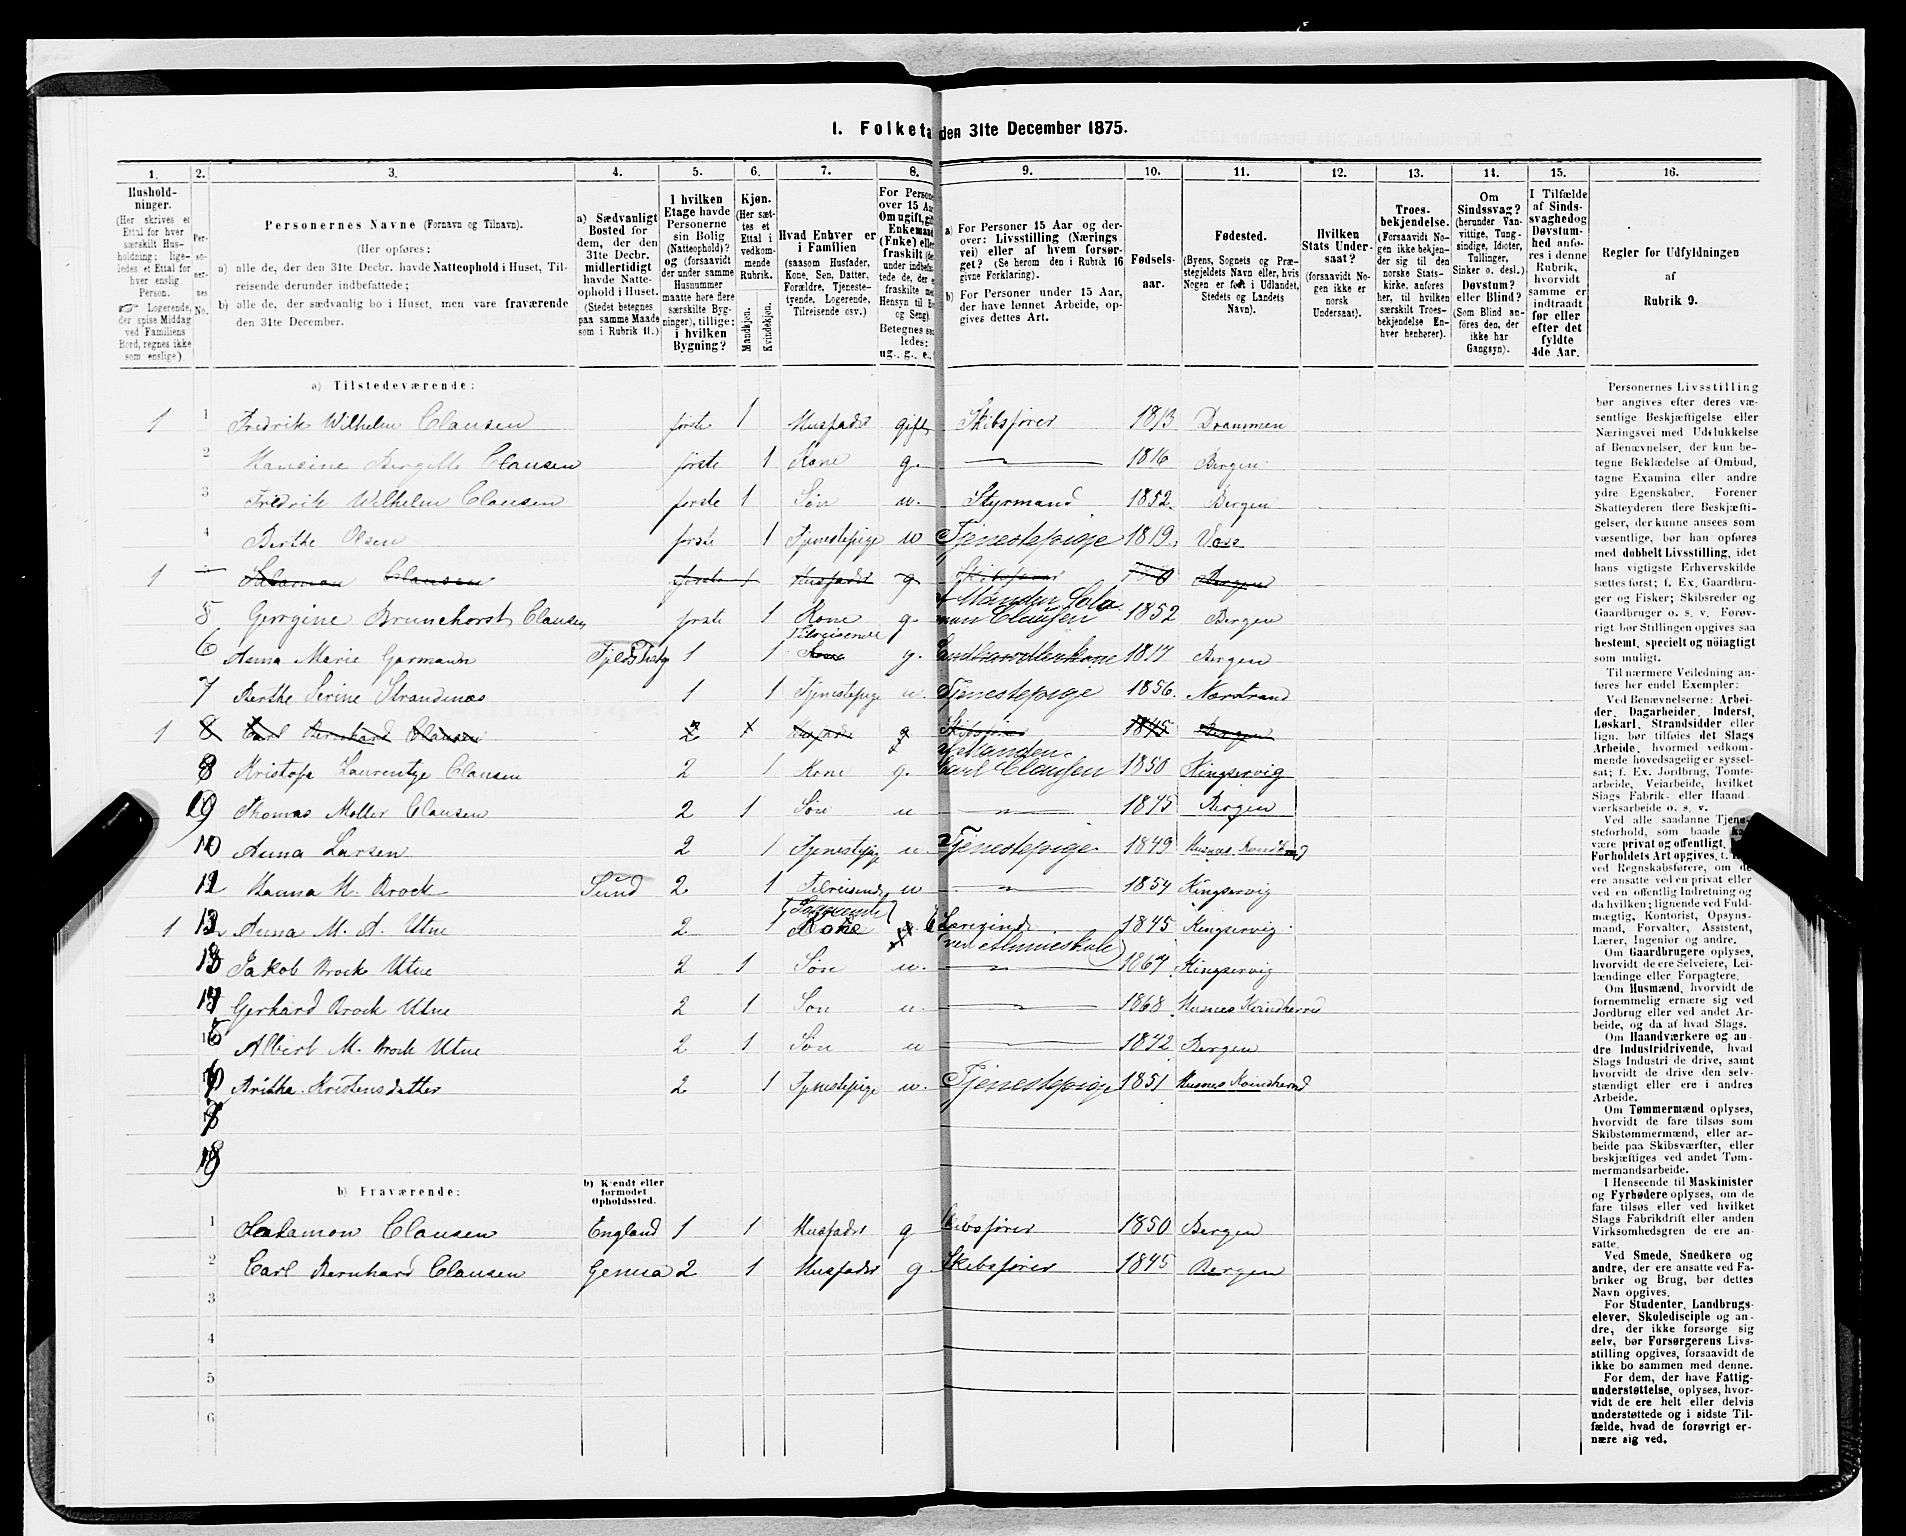 1. Folketæ den 31te December 1875.
1. 2. 3. 4. 5. 6. 7. 8. 9. 10. 11. 12. 13. 14. 15. 16.
Hushold-
ninger.
(Her skrives et
Ettal for hver
særskilt Hus-
holdning; lige-
ledes et Ettal for
hver enslig
Person.
Logerende,
der spise Middag
ved Familiens
Bord, regnes ikke
som enslige).
Per-
so-
ner-
nes
No.
Personernes Navne (Fornavn og Tilnavn).
(Her opføres:
a) alle de, der den 31te Decbr. havde Natteophold i Huset, Til-
reisende derunder indbefattede;
b) alle de, der sædvanlig bo i Huset, men vare fraværende
den 31te December.
a) Sædvanligt
Bosted for
dem, der den
31te Decbr.
midlertidigt
havde Natte-
ophold i Huset.
(Stedet betegnes
paa samme Maade
som i Rubrik 11.)
I hvilken
Etage havde
Personerne
sin Bolig
(Natteophold)?
og (forsaavidt
der under samme
Husnummer
maatte høre flere
særskilte Byg-
ninger), tillige:
i hvilken
Bygning?
Kjøn.
(Her sæt-
tes et
Ettal i
vedkom-
mende
Rubrik.
Mandkjøn.
Kvindekjøn.
Hvad Enhver er
i Familien
(saasom Husfader,
Kone, Søn, Datter,
Forældre, Tjeneste-
tyende, Logerende,
Tilreisende osv.)
For Persone
over 15 Aa
Om ugift, gif
Enkemand
(Enke) elle
fraskilt (der
under indbefa
tede de, der e
fraskilte me
Hensyn til Bo
og Seng).
Betegnes saa
ledes:
ug., g., e.,
a) For Personer 15 Aar og der-
over: Livsstilling (Nærings
vei) eller af hvem forsør-
get? (Se herom den i Rubrik 16
givne Forklaring).
b) For Personer under 15 Aar,
der have lønnet Arbeide, op-
gives dettes Art.
Fødsels-
aar.
Fødested.
(Byens, Sognets og Præ-
stegjeldets Navn eller, hvis
Nogen er født i Udlandet,
Stedets og Landets
Navn).
Hvilken
Stats Under-
saat?
(forsaavidt No-
gen ikke er
norsk
Undersaat).
Troes-
bekjendelse.
(Forsaavidt No-
gen ikke bekjen-
der sig til den
norske Stats-
kirke, anføres
her, til hvilken
særskilt Troes-
bekjendelse En-
hver henhører).
Om
Sindssvag?
(herunder Van-
vittige, Tung-
sindige, Idioter,
Tullinger,
Sinker o. desl.)
Døvstum?
eller Blind?
(Som Blind an-
føres den, der
ikke har
Gangsyn).
I Tilfælde
af Sinds-
svaghed og
Døvstum-
hed anfø-
res i denne
Rubrik,
hvorvidt
samme er
indtraadt
før eller
efter det
fyldte
4de Aar.
Regler for Udfyldningen
af
Rubrik 9.
a) Tilstedeværende:
1 1 Fredrik Wilhelm Clausen første 1 Husfader gift Skibsfører 1813 Drammen
2 Hansine Bergitte Clausen første 1 Kone g. 1816 Bergen
3 Fridrik Wilhelm Clausen første 1 Søn u. Styrmand 1852 Bergen
4 Berthe Olsen første 1 Tjenestepige u Tjenestepige 1819 Voss
1 Salamon Clausen første 1 Husfader g Skibsfører Bergen
5 Gergine Brunchorst Clausen første 1 Kone g. Manden Salamon Clausen 1852 Bergen
6 Anna Marie Garmann 1 1 Tilreisende Kone g. 1817 Bergen
7 Berthe Serine Strandenæs 1 1 Tjenestepige u. Tjenestepige 1856 Nerstrand
1 8 Carl Bernhard Clausen 2 1 Husfader g Skibsfører 1845 Bergen
8 Kristofa Laurentze Clausen 2 1 Kone g. af Manden Carl Clausen 1850 Kingservig
9 Thomas Møller Clausen 2 1 Søn u 1845 Bergen
10 Anna Larsen 2 1 Tjenestepige u. Tjenestepige 1849 Husnes Kvindherred
11 Hanna M. Brock Sund 2 1 Tilreisende u 1854 Kingservig
1 12 Anna M. A. Utne 2 1 Logerende Kone E Lærerinde ved Almueskole 1845 Kingservig
13 Jakob Brock Utne 2 1 Søn u. 1867 Kingservig
14 Gerhard Brock Utne 2 1 Søn u. 1868 Husnes Kvindherred
15 Albert M. Brock Utne 2 1 Søn u 1872 Bergen
16 Brithe Kristensdatter 2 1 Tjenestepige u. Tjenestepige 1851 Husnes Kvindherred
b) Fraværende:
b) Kjendt eller
formodet
Opholdssted.
1 Salamon Clausen England 1 1 Husfader g Skibsfører 1850 Bergen
2 Carl Bernhard Clausen Genua 2 1 Husfader g Skibsfører 1845 Bergen
3
4
5
6
Personernes Livsstilling
bør angives efter deres væ-
sentlige Beskjæftigelse eller
Næringsvei med Udelukkelse
af Benævnelser, der kun be-
tegne Beklædelse af Ombud,
tagne Examina eller andre
ydre Egenskaber. Forener
Skatteyderen flere Beskjæfti-
gelser, der kunne ansees som
væsentlige, bør han opføres
med dobbelt Livsstilling, idet
hans vigtigste Erhvervskilde
sættes først; f. Ex. Gaardbru-
ger og Fisker; Skibsreder og
Gaardbruger o. s. v. Forøv-
rigt bør Stillingen opgives saa
bestemt, specielt og nøiagtigt
som muligt.
Til nærmere Veiledning an-
føres her endel Exempler:
Ved Benævnelserne: Arbei-
der, Dagarbeider, Inderst,
Løskarl, Strandsidder eller
lign. bør tilføies det Slags
Arbeide, hvormed vedkom-
mende hovedsagelig er syssel-
sat; f. Ex. Jordbrug, Tomte-
arbeide, Veiarbeide, hvilket
Slags Fabrik- eller Haand
værksarbeide o. s. v.
Ved alle saadanne Tjene-
steforhold, som baade ka
være privat og offentligt,
Forholdets Art opgives, t.
ved Regnskabsførere, om de
ere ansatte ved en privat eller
ved en offentlig Indretning og
da hvilken; lignende ved Fuld-
mægtig, Kontorist, Opsyns-
mand, Forvalter, Assistent,
Lærer, Ingeniør og andre.
Om Gaardbrugere oplyses,
hvorvidt de ere Selveiere, Lei-
lændinge eller Forpagtere.
Om Husmænd, hvorvidt de
fornemmelig ernære sig ved
Jordbrug eller ved andet Ar-
beide, og da af hvad Slags.
Om Haandværkere og an-
dre Industridrivende, hvad
Slags Industri de drive, samt
hvorvidt de drive den selv-
stændigt eller ere i andres
Arbeide.
Om Tømmermænd oplyses,
hvorvidt de fare tilsøs som
Skibstømmermænd, eller ar-
beide paa Skibsværfter, eller
beskjæftiges ved andet Tøm-
mermandsarbeide.
I Henseende til Maskinister
og Fyrbødere oplyses, om de
fare tilsøs eller ved hvilket
Slags Fabrikdrift eller anden
Virksomhedsgren de ere an-
satte.
Ved Smede, Snedkere og
andre, der ere ansatte ved Fa-
briker og Brug, bør dettes
Navn opgives.
For Studenter, Landbrugs-
elever, Skoledisciple og an-
dre, der ikke forsørge sig
selv, bør Forsørgerens Livs-
stilling opgives, forsaavidt de
ikke bo sammen med denne.
For dem, der have Fattig-
understøttelse, oplyses, hvor-
vidt de ere helt eller delvis
understøttede og i sidste Til-
fælde, hvad de forøvrigt er-
nære sig ved.